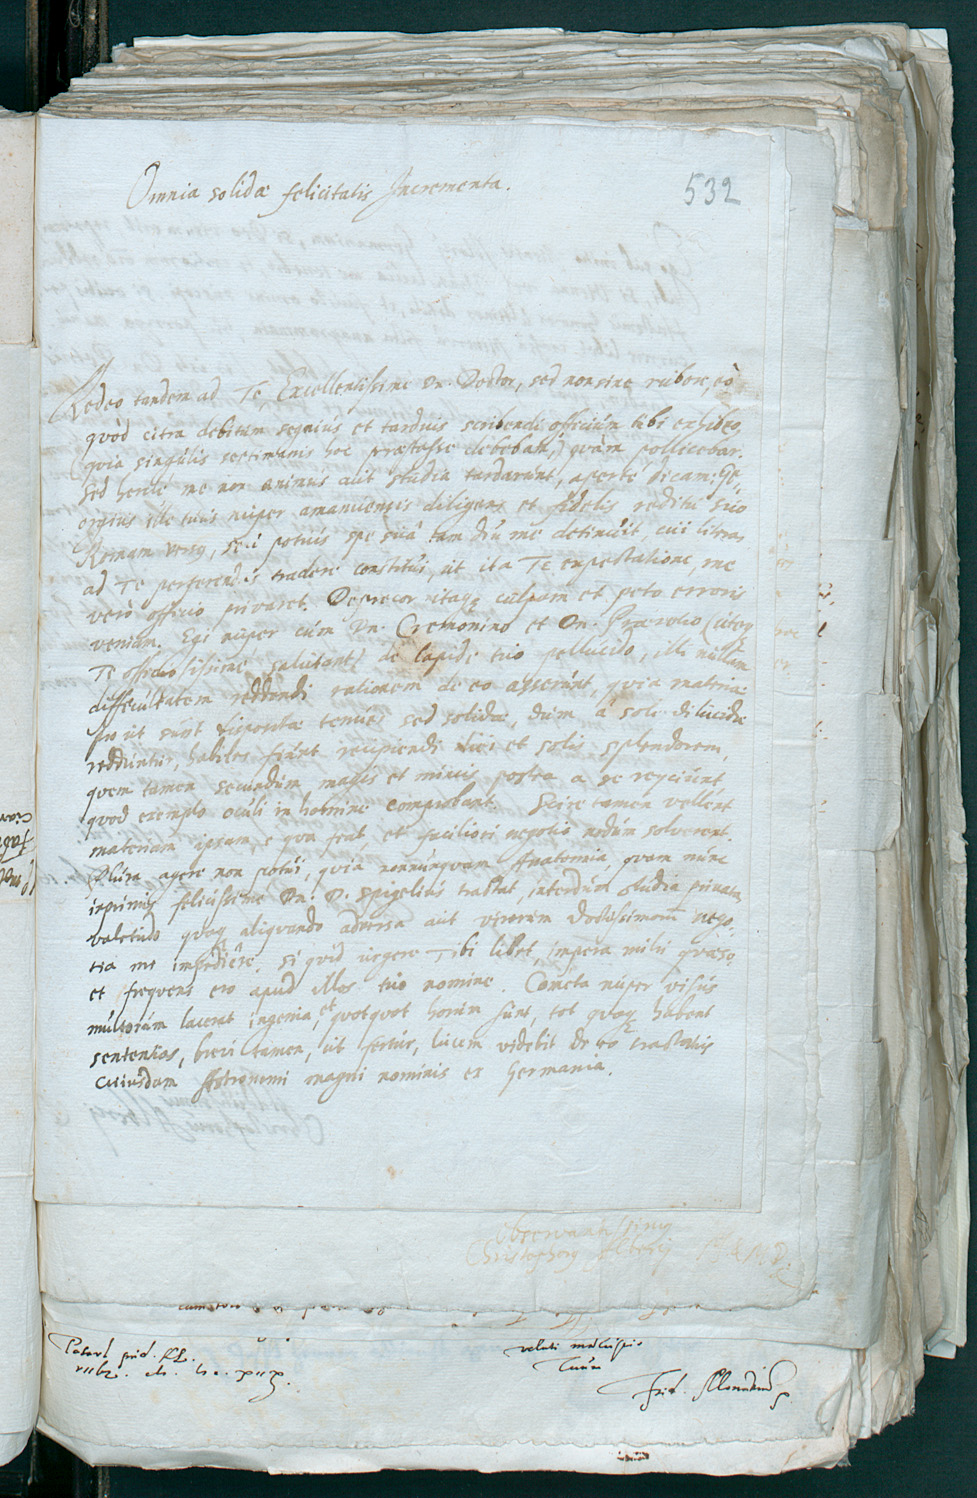 Omnia solidæ felicitatis Incrementa.
532
Redeo tandem ad Te, Excellentissime Dn. Doctor, sed non sine rubore, eò
quòd citra debitum segniùs et tardius scribendi officium tibi exhibeo
(quia singulis septimanis hoc præstasse debebam,) quàm pollicebar.
Sed hercle me non animus aut studia tardarunt, apertè dicam:
ille tuus nuper amanuensis diligens et fidelis reditu suo
Romam versus, seu potius spe suâ tam diu me detinuit, cui litras
ad Te perferendas tradere constitui, ut ita Te expectatione, me
verò officio privaret. Deprecor itaq culpam et peto erroris
veniam. Egi nuper cum Dn. Cremonino et Dn. Prævotio (uterq
Te officiosissimè salutant) de lapide tuo pellucido, illi nullam
difficultatem reddendi rationem de eo asserunt, quia materiæ
ut sunt dispositæ tenues sed solidæ, dum à sole dilucidæ
redduntur, habiles fiunt recipiendi et solis splendorem,
quem tamen secundum magis et minus postea a se reijciunt
quod exemplo oculi in homine comprobant. Scire tamen vellent
materiam ipsam, e qua fiat, et faciliori negotio nodum solverent.
Plura agere non potui, quia nonnunquam Anatomia, quam nunc
inprimis felicissimè Dn. D. Spigelius tractat, interdum studia privata
valetudo quoq aliquando adversa aut virorum doctissimorum nego-
tia me impediêre. Si quid urgere Tibi libet, impera mihi quæso,
et frequens ero apud illos tuo nomine. Cometa nuper visus
multorum lacerat ingenia, et quotquot horum sunt, tot quoq habent
sententias, brevi tamen, ut fertur, lucem videbit de eo tractatus
cuiusdam Astronomi magni nominis ex Germania.
observantissimus
Christophorus
veluti mancipio
Tuum